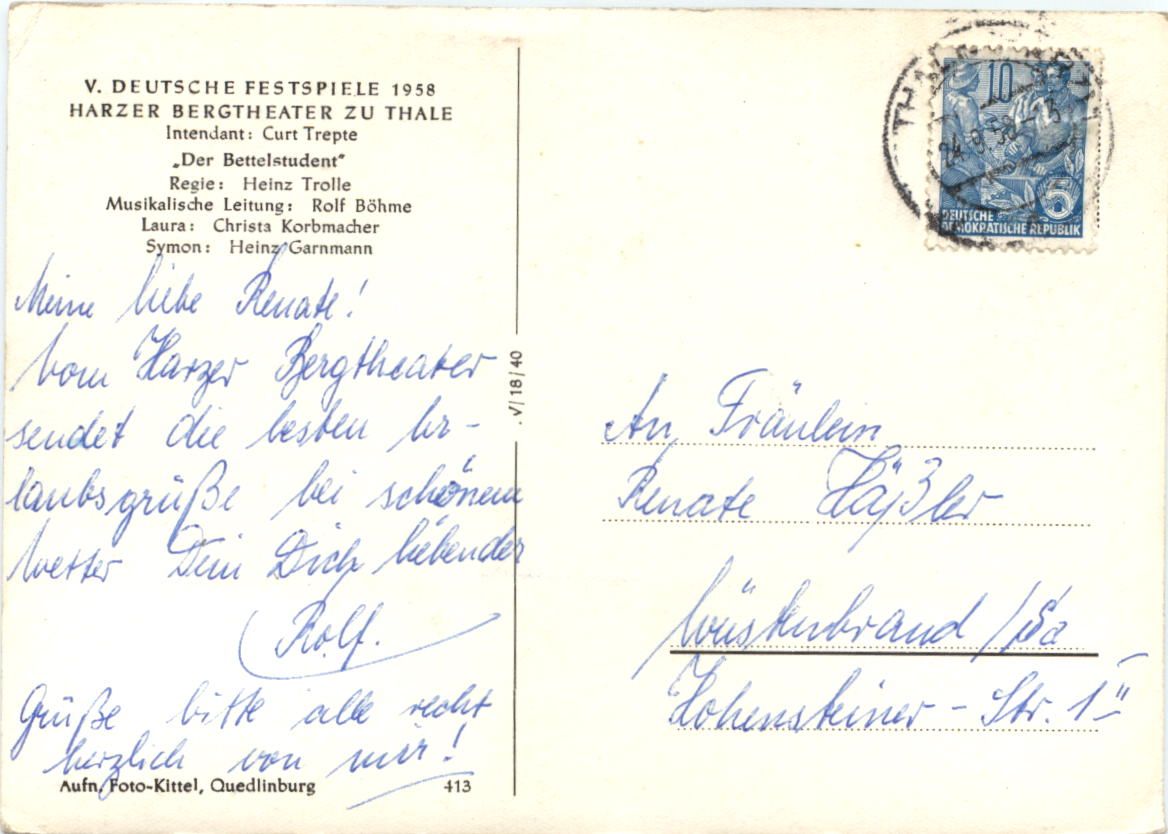 V. DEUTSCHE FESTSPIELE 1958
HARZER BERGTHEATER ZU THALE
Intendant: Curt Trepte
„Der Bettelstudent"
Regie: Heinz Trolle
Musikalische Leitung: Rolf Böhme
Laura: Christa Korbmacher
Symon: Heinz Garnmann
Meine liebe Renate!
Vom Harzer Bergtheater
sendet die besten Ur-
laubsgrüße bei schönem
Wetter Dein Dich liebender
Rolf.
Grüße bitte alle recht
herzlich von mir!
Aufn. Foto-Kittel, Quedlinburg 413
V/18/40
THALE
24.9.58-13
10
5
DEUTSCHE
DEMOKRATISCHE REPUBLIK
An Fräulein
Renate Häßler
Wüstenbrand /Sa
Hohensteiner-Str. 1